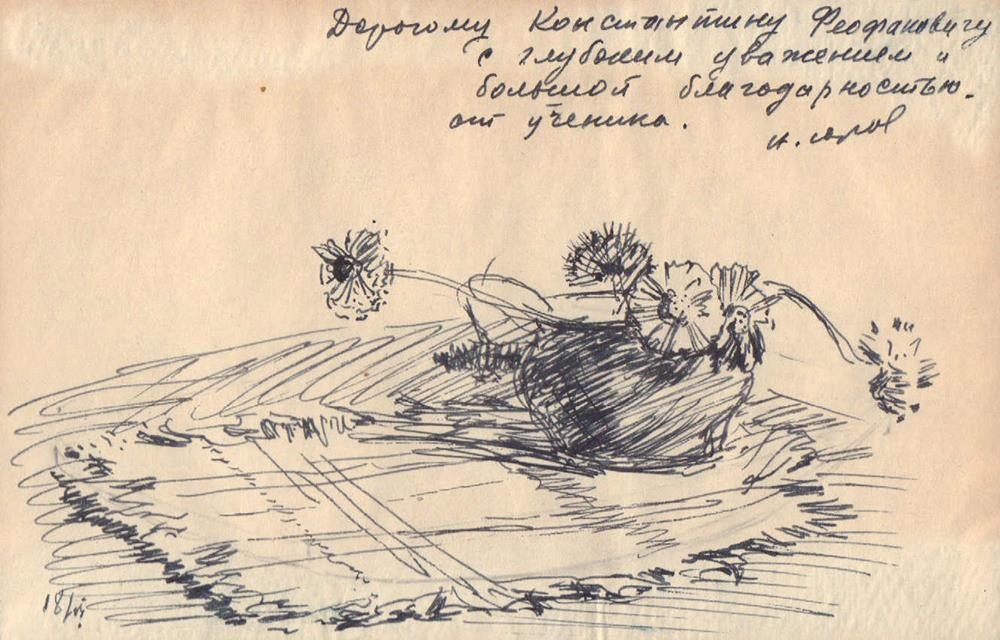 Дорогому Константину Феофановичу
с глубоким уважением и
большой благодарностью.
от ученика.
18/VI